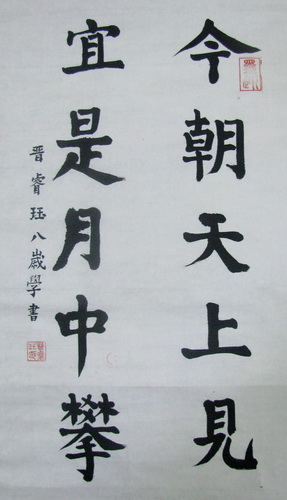 今朝天上見
宜是月中攀
晋睿珏八歲學書